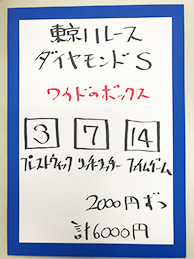 東京11レース
ダイヤモンドS
ワイドのボックス
3 7 14
プレストウィック リッキータッチー ファイムゲーム
2000円ずつ
計6000円